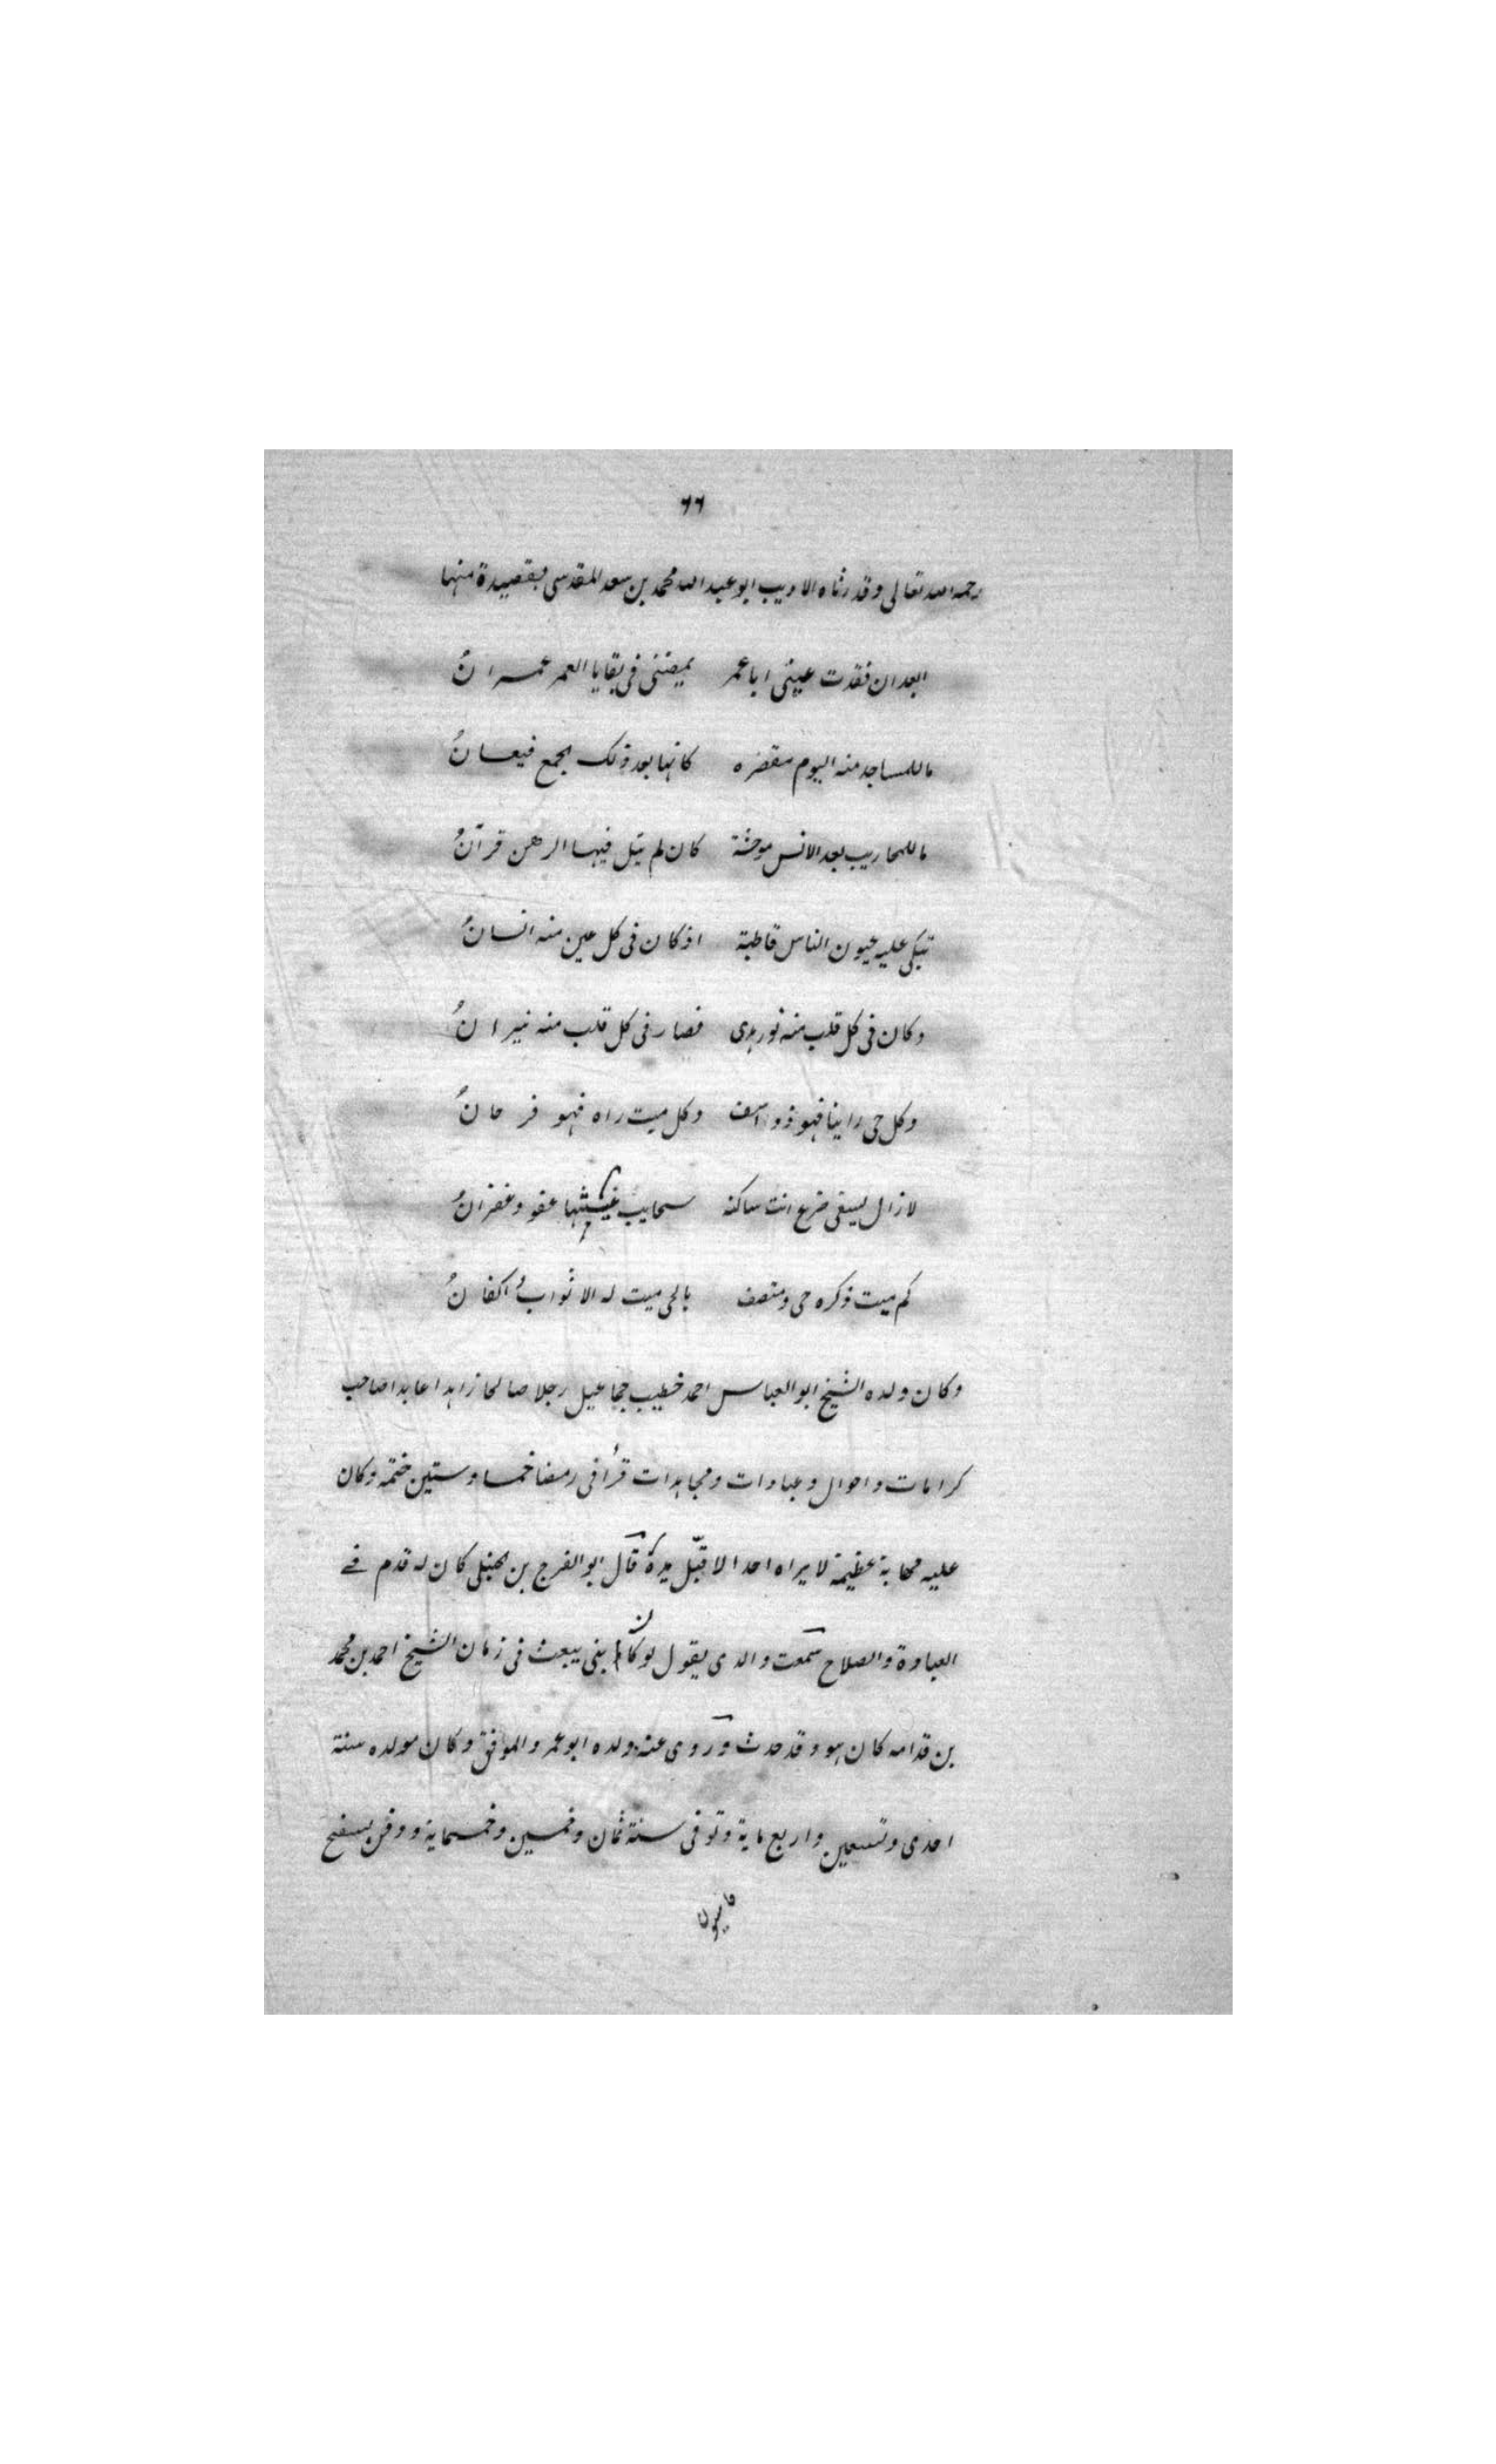 ٦٦
رحمه الله تعالى وقد رثاه الاديب ابو عبد الله محمد بن سعد المقدسى بقصيدة منها
ابعد ان فقدت عينى ابا عمر يمضنى فى بقايا العمر عمرانُ
ما للمساجد منه اليوم مقفره كانها بعد ذلك الجمع قيعانُ
ما للمحاريب بعد الانس موحشة كان لم يتل فيها الرهن قرآنُ
تبكى عليه عيون الناس قاطبة اذ كان فى كل عين منه انسانُ
وكان فى كل قلب منه نور هدى فصار فى كل قلب منه نيرانُ
وكل حى راينا فهو ذو اسف وكل ميت راه فهو فرحانُ
لا زال يسقى ضريح انت ساكنه سحايب غيثها عفو وغفرانُ
كم ميت ذكره حى ومتصف بالحى ميت له الاثوابُ اكفانُ
وكان ولده الشيخ ابو العباس احمد خطيب جماعيل رجلا صالحا زاهدا عابدا صاحب
كرامات واحوال وعبادات ومجاهدات قرأ فى رمضا خمسا وستين ختمه وكان
عليه مهابة عظيمة لا يراه احد الا قبّل يده قال ابو الفرج بن الحنبلى كان له قدم فى
العبادة والصلاح سمعت والدى يقول لو كان نبى يبعث فى زمان الشيخ احمد بن محمد
بن قدامه كان هو وقد حدث وروى عنه ولده ابو عمر والموفق وكان مولده سنة
احدى وتسعين واربع ماية وتوفى سنة ثمان وخمسين وخمسماية ودفن بسفح
قاسيون